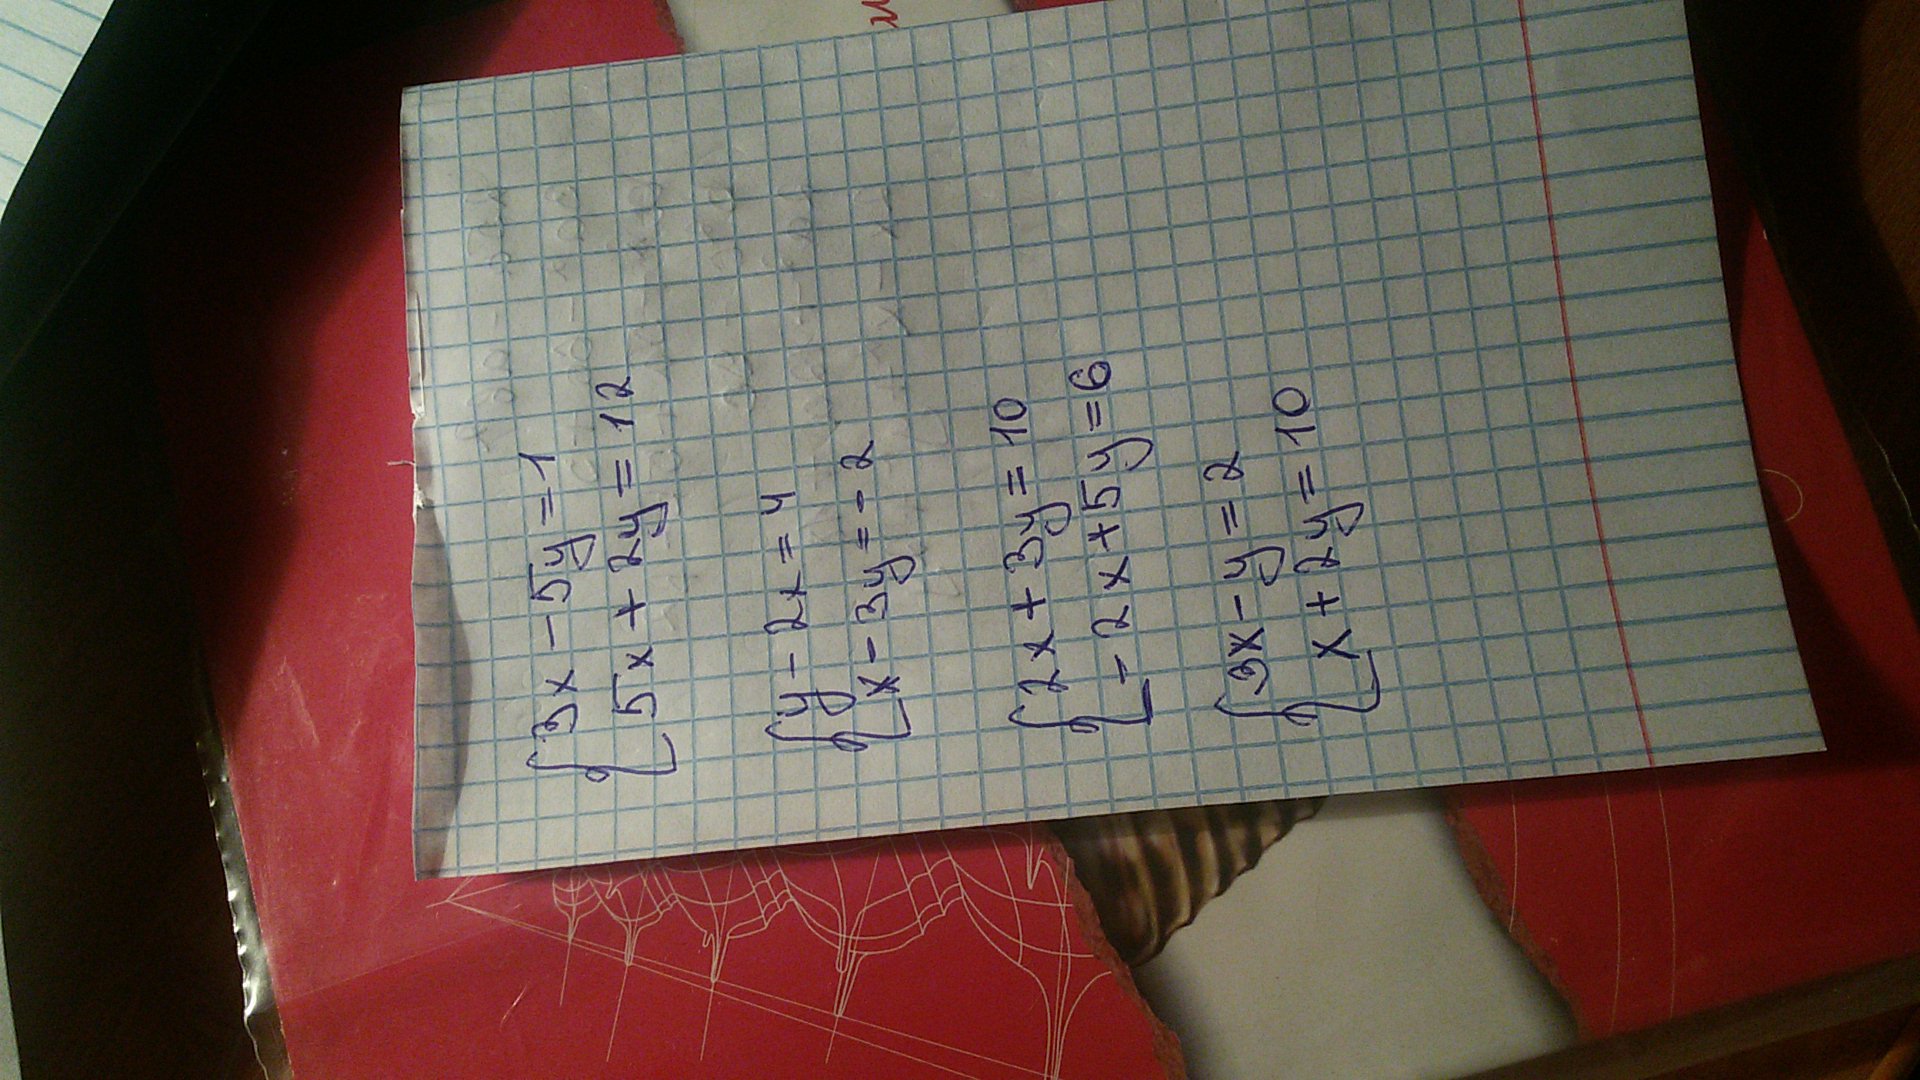 3x - 5y = 1
5x + 2y = 12
y - 2x = 4
x - 3y = - 2
2x + 3y = 10
- 2x + 5y = 6
3x - y = 2
x + 2y = 10